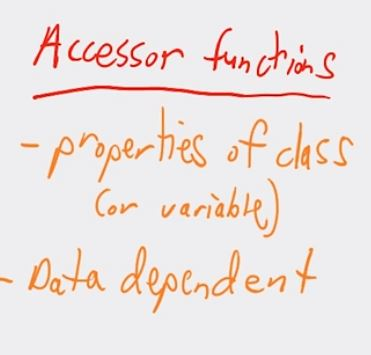 Accessor functions
- properties of class
(or variable)
- Data dependent